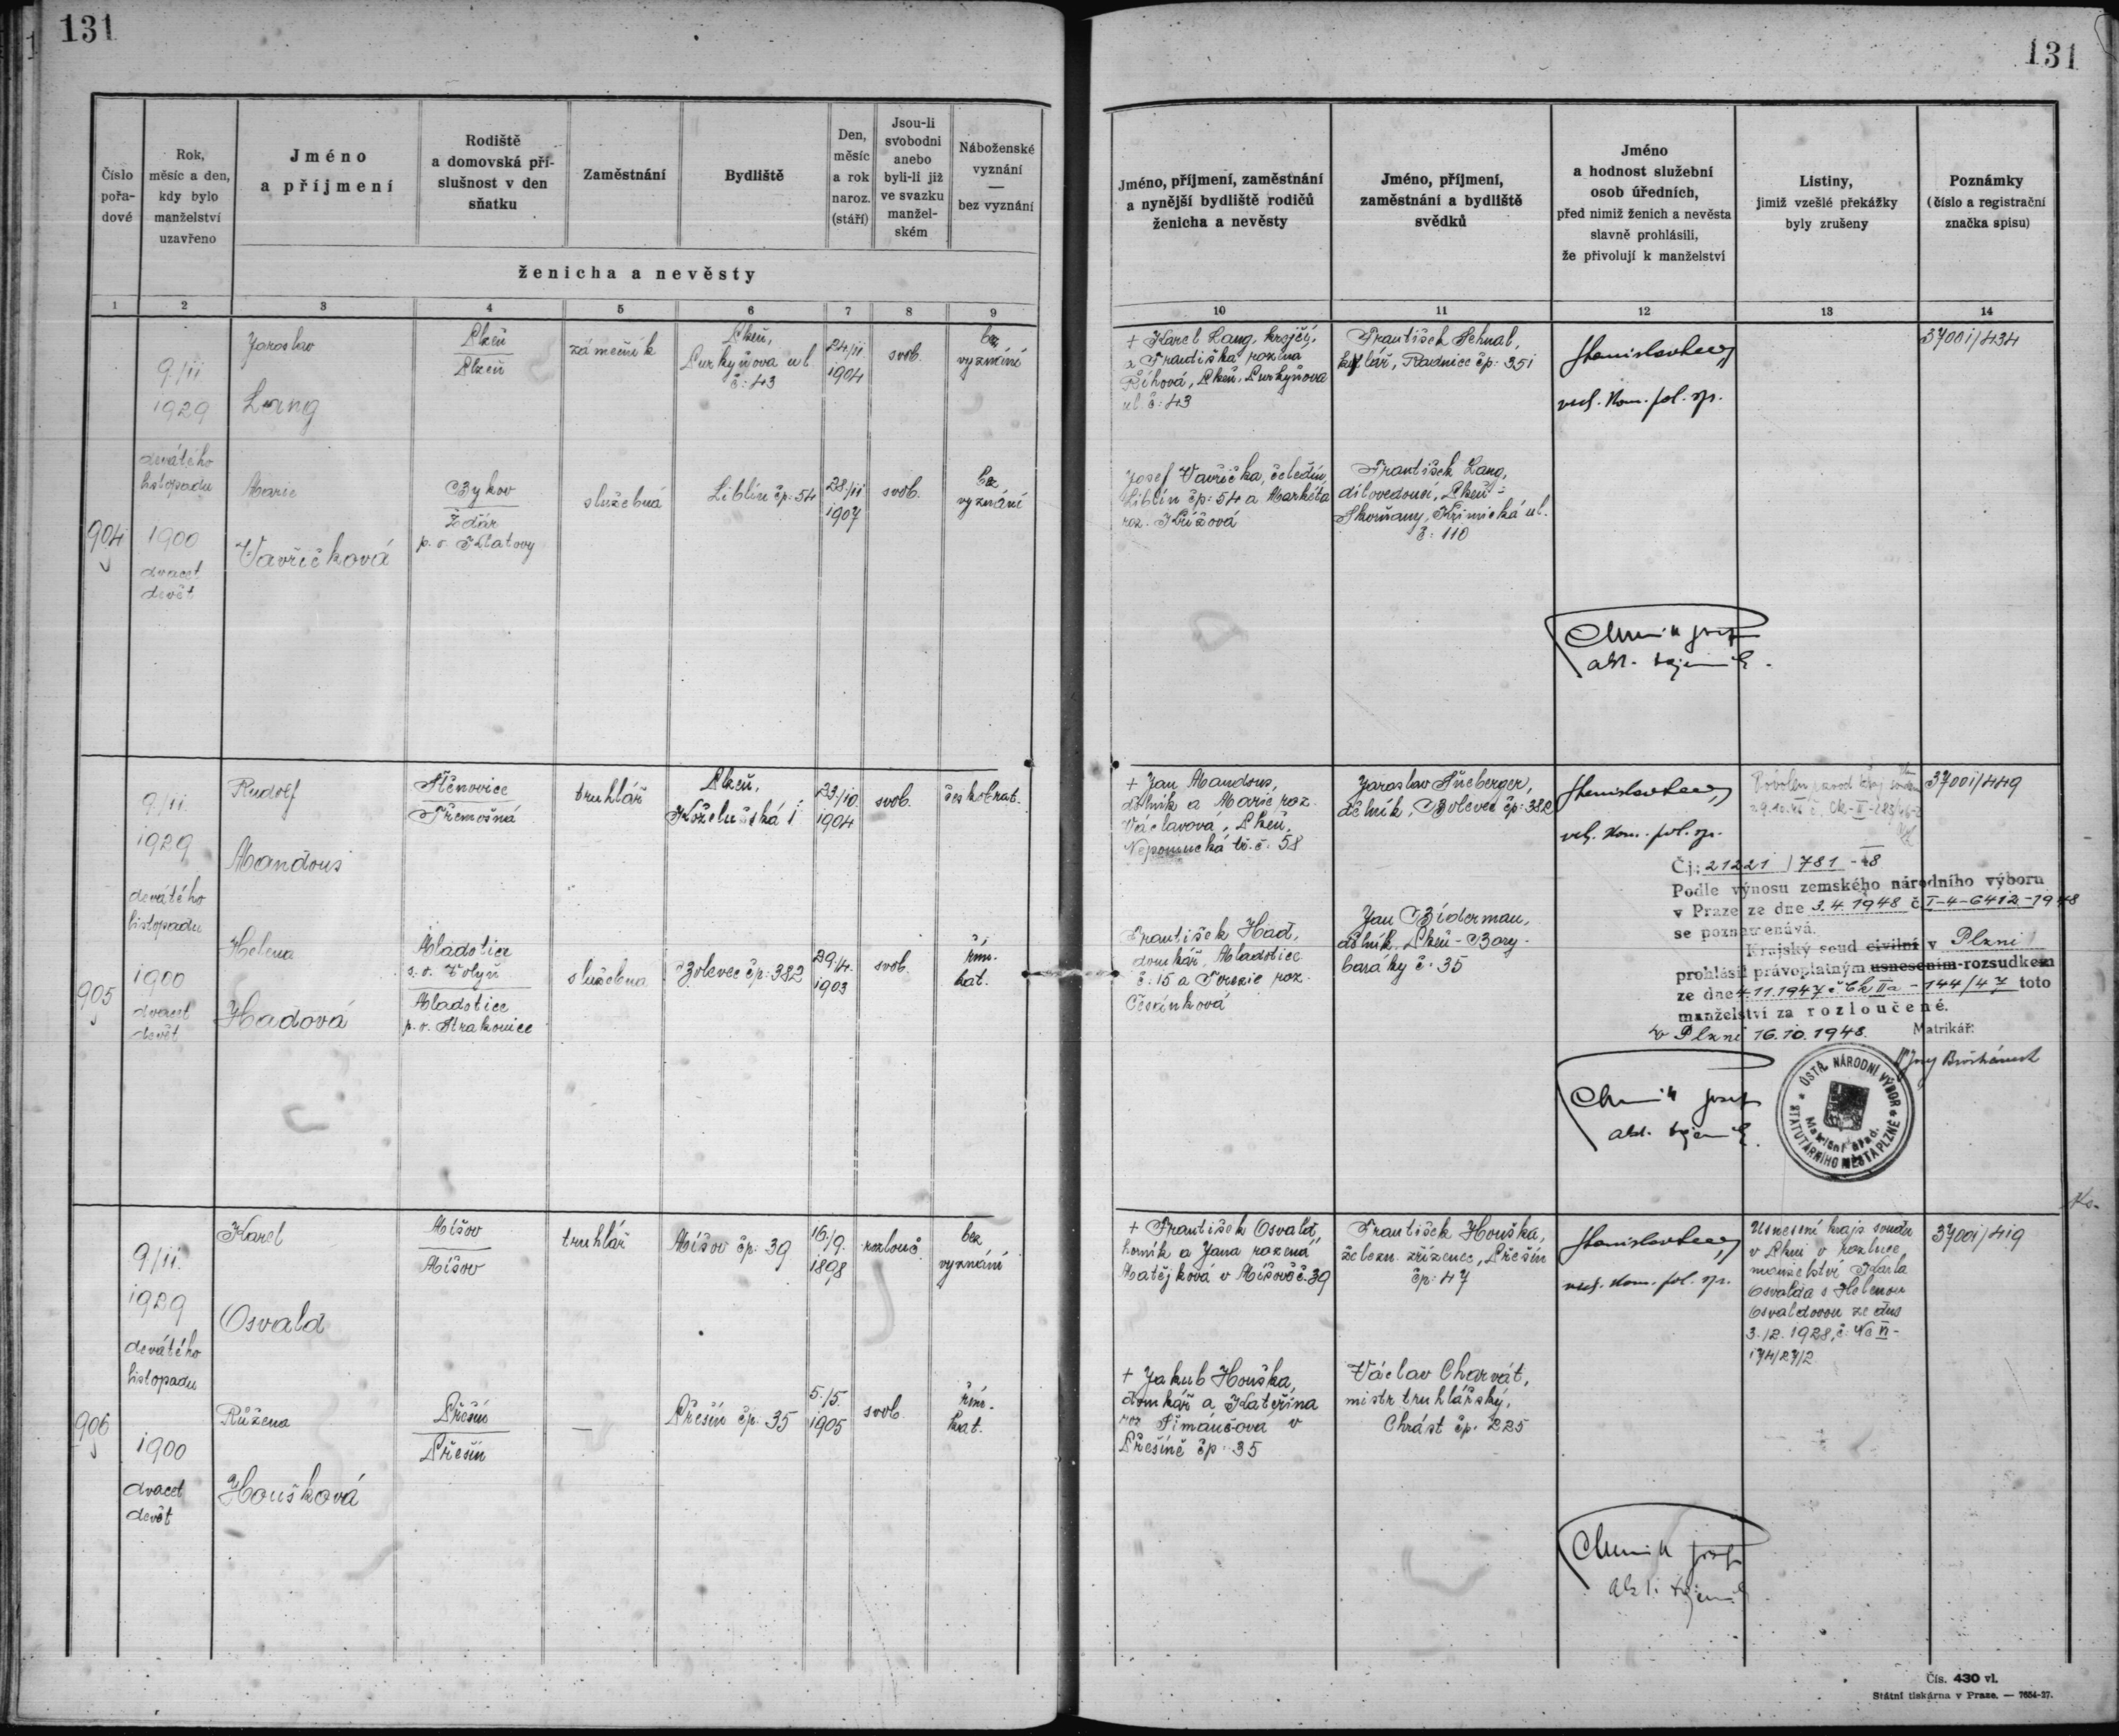 131
131
Číslo
pořa-
dové
Rok,
měsíc a den,
kdy bylo
manželství
uzavřeno
Jméno
a příjmení
Rodiště
a domovská pří-
slušnost v den
sňatku
Zaměstnání
Bydliště
Den,
měsíc
a rok
naroz.
(stáří)
Jsou-li
svobodni
anebo
byli-li již
ve svazku
manžel-
ském
Náboženské
vyznání
—
bez vyznání
ženicha a nevěsty
Jméno, příjmení, zaměstnání
a nynější bydliště rodičů
ženicha a nevěsty
Jméno, příjmení,
zaměstnání a bydliště
svědků
Jméno
a hodnost služební
osob úředních,
před nimiž ženich a nevěsta
slavně prohlásili,
že přivolují k manželství
Listiny,
jimiž vzešlé překážky
byly zrušeny
Poznámky
(číslo a registrační
značka spisu)
1 2 3 4 5 6 7 8 9 10 11 12 13 14
904
9/11
1929
devátého
listopadu
1900
dvacet
devět
Jaroslav
Lang
Plzeň
Plzeň
zámečník
Plzeň,
Purkyňova ul.
č: 43
24/11
1904
svob.
bez
vyznání
Marie
Vavřičková
Bykov
Žďár
p. o. Klatovy
služebná
Liblín čp: 54
28/11
1907
svob.
bez
vyznání
+ Karel Lang, krejčí,
a Františka rozená
Říhová, Plzeň, Purkyňova
ul. č: 43
Josef Vavřička, čeledín,
Liblín čp: 54 a Markéta
roz. Křížová
František Sehnal,
kotlář, Radnice čp: 351
František Lang,
dílovedoucí, Plzeň -
Skvrňany, Křimická ul.
č: 110
vrch. kom. pol. sp.
37001/434
905
9/11.
1929
devátého
listopadu
1900
dvacet
devět
Rudolf
Mandous
Štěnovice
Třemošná
truhlář
Plzeň,
Koželužská 1
23./10.
1904
svob.
českobrat.
Helena
Hadová
Mladotice
s. o. Volyň
Mladotice
p. o. Strakonice
služebna
Bolevec čp: 382
29./4.
1903
svob.
řím.
kat.
+ Jan Mandous,
dělník a Marie roz.
Václavová, Plzeň,
Nepomucká tř. č. 58
František Had,
domkář, Mladotice
č. 15 a Terezie roz.
Česánková
Jaroslav Šneberger,
dělník, Bolevec čp: 382
Jan Biderman,
dělník, Plzeň - Bory -
baráky č. 35
vrch. kom. pol. sp.
37001/449
Čj: 21221 / 781 - 48
Podle výnosu zemského národního výboru
v Praze ze dne 3.4.1948 č. I-4-6412-1948
se poznamenává.
Krajský soud civilní v Plzni
prohlásil právoplatným usnesením-rozsudkem
ze dne 4.11.1947 č Ck IIa - 144/47 toto
manželství za rozloučené.
V Plzni 16.10.1948. Matrikář:
ÚSTŘ. NÁRODNÍ VÝBOR
STATUTÁRNÍHO MĚSTA PLZNĚ
Matriční úřad.
906
9/11.
1929
devátého
listopadu
1900
dvacet
devět
Karel
Osvald
Míšov
Míšov
truhlář
Míšov čp: 39
16./9.
1898
rozlouč.
bez
vyznání
Růžena
Houšková
Přešín
Přešín
—
Přešín čp: 35
5./5.
1905
svob.
řím.
kat.
+ František Osvald,
horník a Jana rozená
Matějková v Míšově č. 39
+ Jakub Houška,
domkář a Kateřina
roz. Šimáňová v
Přešíně čp: 35
František Houška,
železn. zřízenec, Přešín
čp: 47
Václav Charvát,
mistr truhlářský,
Chrást čp. 225
vrch. kom. pol. sp.
Usnesení krajs. soudu
v Plzni o rozluce
manželství Karla
Osvalda s Helenou
Osvaldovou ze dne
3./2. 1928, č: Nc VI -
174/27/2.
37001/419
Čís. 430 vl.
Státní tiskárna v Praze. — 7654-27.